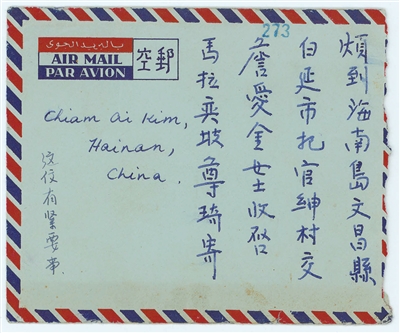 بالبريد الجوى
AIR MAIL
PAR AVION
空郵
273
煩到海南島文昌縣
白延市扎官紳村交
詹愛金女士收啓
馬拉奕坡尊琦寄
Chiam Ai Kim,
Hainan,
China.
有緊要事